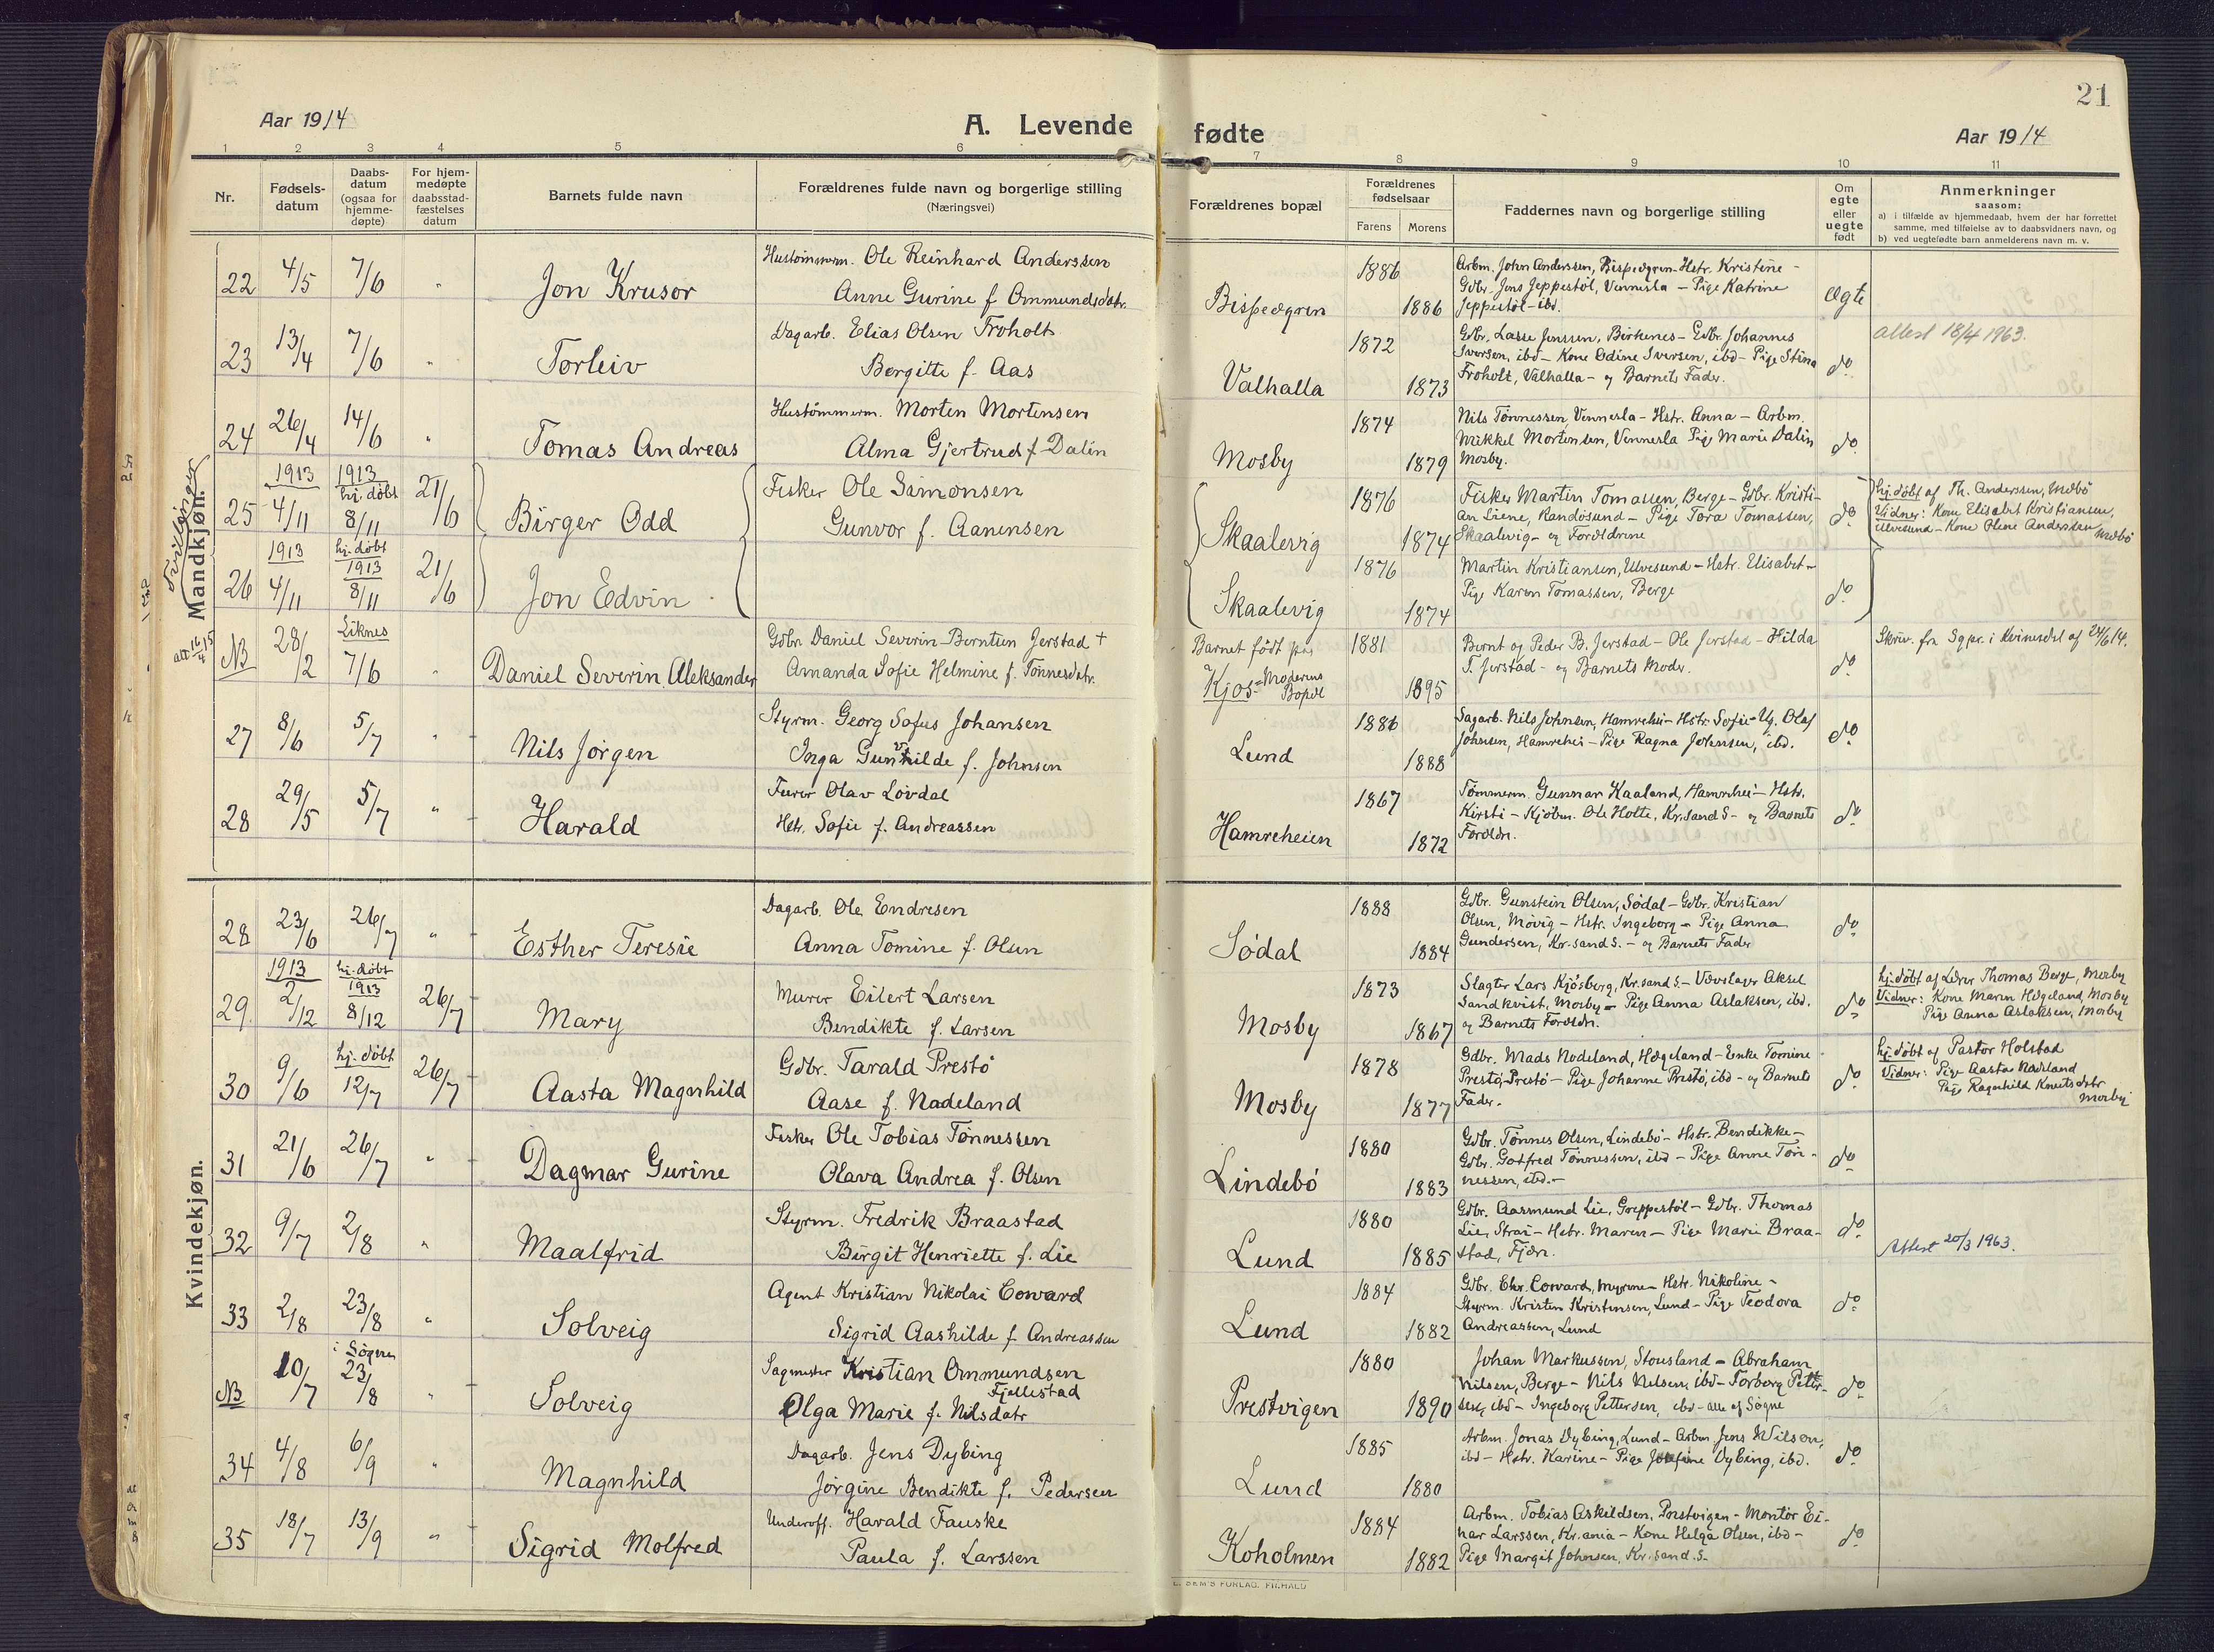 21
Aar 1914
A. Levende
fødte
Aar 1914
1 2 3 4 5 6 7 8 9 10 11
Nr.
Fødsels-
datum
Daabs-
datum
(ogsaa for
hjemme-
døpte)
For hjem-
medøpte
daabsstad-
fæstelses
datum
Barnets fulde navn
Forældrenes fulde navn og borgerlige stilling
(Næringsvei)
Forældrenes bopæl
Forældrenes
fødselsaar
Farens Morens
Faddernes navn og borgerlige stilling
Om
egte
eller
uegte
født
Anmerkninger
saasom:
a) i tilfælde av hjemmedaab, hvem der har forrettet
samme, med tilføielse av to daabsvidners navn, og
b) ved uegtefødte barn anmelderens navn m. v.
Mandkjøn.
22 4/5 7/6 " Jon Krusor
Hustømmerm. Ole Reinhard Anderssen
Anne Gurine f. Ommundsdatr.
Bispegren 1886 1886
Arbm. John Anderssen, Bispegren - Hstr. Kristine -
Gdbr. Jens Jeppestøl, Vennesla - Pige Katrine
Jeppestøl - ibd.
Ægte
23 13/4 7/6 " Torleiv
Dagarb. Elias Olsen Froholt
Bergitte f. Aas
Valhalla 1872 1873
Gdbr. Lasse Jenssen, Birkenes - Gdbr. Johannes
Iversen, ibd - Kone Odine Iversen, ibd - Pige Stina
Froholt, Valhalla - og Barnets Fader.
do
Attest 18/4 1963.
24 26/4 14/6 " Tomas Andreas
Hustømmerm. Morten Mortensen
Alma Gjertrud f. Dalin
Mosby 1874 1879
Nils Tønnessen Vennesla - Hstr. Anna - Arbm.
Mikkel Mortensen, Vennesla Pige Marie Dalin
Mosby.
do
Tvillinger
25 1913 4/11 1913 hj. døbt 8/11 21/6 Birger Odd
Fisker Ole Simonsen
Gunvor f. Aanensen
Skaalevig 1876 1874
Fisker Martin Tomassen, Berge - Gdbr. Kristi-
an Liene, Randøsund - Pige Tora Tomassen,
Skaalevig - og Forældrene
do
hj. døbt af Th. Anderssen, Mebø
Vidner: Kone Elisabet Kristiansen,
Ulvesund - Kone Olene Anderssen
Mebø
26 1913 4/11 hj. døbt 1913 8/11 21/6 Jon Edvin
Skaalevig 1876 1874
Martin Kristiansen, Ulvesund - Hstr. Elisabet -
Pige Karen Tomassen, Berge
do
att 16/4 15
NB 28/2 Liknes 7/6 " Daniel Severin Aleksander
Gdbr Daniel Severin Berntsen Jerstad +
Amanda Sofie Helmine f. Tønnesdatr.
Barnet født paa
Kjos = Moderens
Bopæl
1881 1895
Bernt og Peder B. Jerstad - Ole Jerstad - Hilda
T. Jerstad - og Barnets Moder.
do
Skriv. fra Sgpr. i Kvinesdal af 24/6 14.
27 8/6 5/7 " Nils Jørgen
Styrm. Georg Sofus Johansen
Inga Gunvhilde f. Johnsen
Lund 1886 1888
Sagarb. Nils Johnsen, Hamrehei - Hstr. Sofie - Ug. Olaf
Johnsen, Hamrehei - Pige Ragna Johnsen, ibd.
do
28 29/5 5/7 " Harald
Furer Olav Løvdal
Hstr. Sofie f. Andreassen
Hamreheien 1867 1872
Tømmerm. Gunnar Kaaland, Hamrehei - Hstr.
Kirsti - Kjøbm. Ole Holte, Kr.sand S - og Barnets
Forældr.
do
Kvindekjøn.
28 23/6 26/7 " Esther Teresie
Dagarb. Ole Endresen
Anna Tomine f. Olsen
Sødal 1888 1884
Gdbr. Gunstein Olsen, Sødal - Gdbr. Kristian
Olsen, Møvig - Hstr. Ingeborg - Pige Anna
Gundersen, Kr.sand S. - og Barnets Fader
do
29. 1913 2/12 hj. døbt 1913 8/12 26/7 Mary
Murer Eilert Larsen
Bendikte f. Larsen
Mosby 1873 1867
Slagter Lars Kjøsberg, Kr.sand S. - Væveslager Aksel
Sandkvist, Mosby - Pige Anna Aslaksen, ibd.
og Barnets Forældr.
do
hj. døbt af Lærer Thomas Berge, Mosby
Vidner: Kone Maren Hægeland, Mosby
Pige Anna Aslaksen, Mosby
30 9/6 hj. døbt 12/7 26/7 Aasta Magnhild
Gdbr. Tarald Prestø
Aase f. Nadeland
Mosby 1878 1877
Gdbr. Mads Nodeland, Hægeland - Enke Tomine
Prestø, Prestø - Pige Johanne Prestø, ibd - og Barnets
Fader.
do
hj. døbt af Pastor Holstad
Vidner: Pige Aasta Nadeland
Pige Ragnhild Knutsdatr
Mosby
31 21/6 26/7 " Dagmar Gurine
Fisker Ole Tobias Tønnessen
Olava Andrea f. Olsen
Lindebø 1880 1883
Gdbr. Tønnes Olsen, Lindebø - Hstr. Bendikke -
Gdbr. Gotfred Tønnessen, ibd - Pige Anne Tøn-
nessen, ibd. -
do
32 9/7 2/8 " Maalfrid
Styrm. Fredrik Braastad
Birgit Henriette f. Lie
Lund 1880 1885
Gdbr. Aasmund Lie, Greppestøl - Gdbr. Thomas
Lie, Strai - Hstr. Maren - Pige Marie Braa-
stad, Fjære.
do
Attest 20/3 1963.
33 2/8 23/8 " Solveig
Agent Kristian Nikolai Coward
Sigrid Aashilde f. Andreassen
Lund 1884 1882
Gdbr. Chr. Coward, Myrene - Hstr. Nikoline -
Styrm. Kristen Kristensen, Lund - Pige Teodora
Andreassen, Lund
do
NB 10/7 i Søgne 23/8 " Solveig
Sagmester Kristian Ommundsen
Fjellestad
Olga Marie f. Nilsdatr
Prestvigen 1880 1890
Johan Markussen, Stousland - Abraham
Nilsen, Berge - Nils Nilsen, ibd - Torborg Petter-
sen, ibd - Ingeborg Pettersen, ibd - alle af Søgne
do
34 4/8 6/9 " Magnhild
Dagarb. Jens Dybing
Jørgine Bendikte f. Pedersen
Lund 1885 1880
Arbm. Jonas Dybing, Lund - Arbm. Jens Wilson,
ibd - Hstr. Karine - Pige Josefine Dybing, ibd.
do
35 18/7 13/9 " Sigrid Molfred
Underoff. Harald Fauske
Paula f. Larssen
Koholmen 1884 1882
Arbm. Tobias Askildsen, Prestvigen - Montør Ei-
nar Larssen, Kr.ania - Kone Helga Olsen, ibd -
Pige Margit Johnsen, Kr.sand.S.
do
E. SEM'S FORLAG, FR.HALD